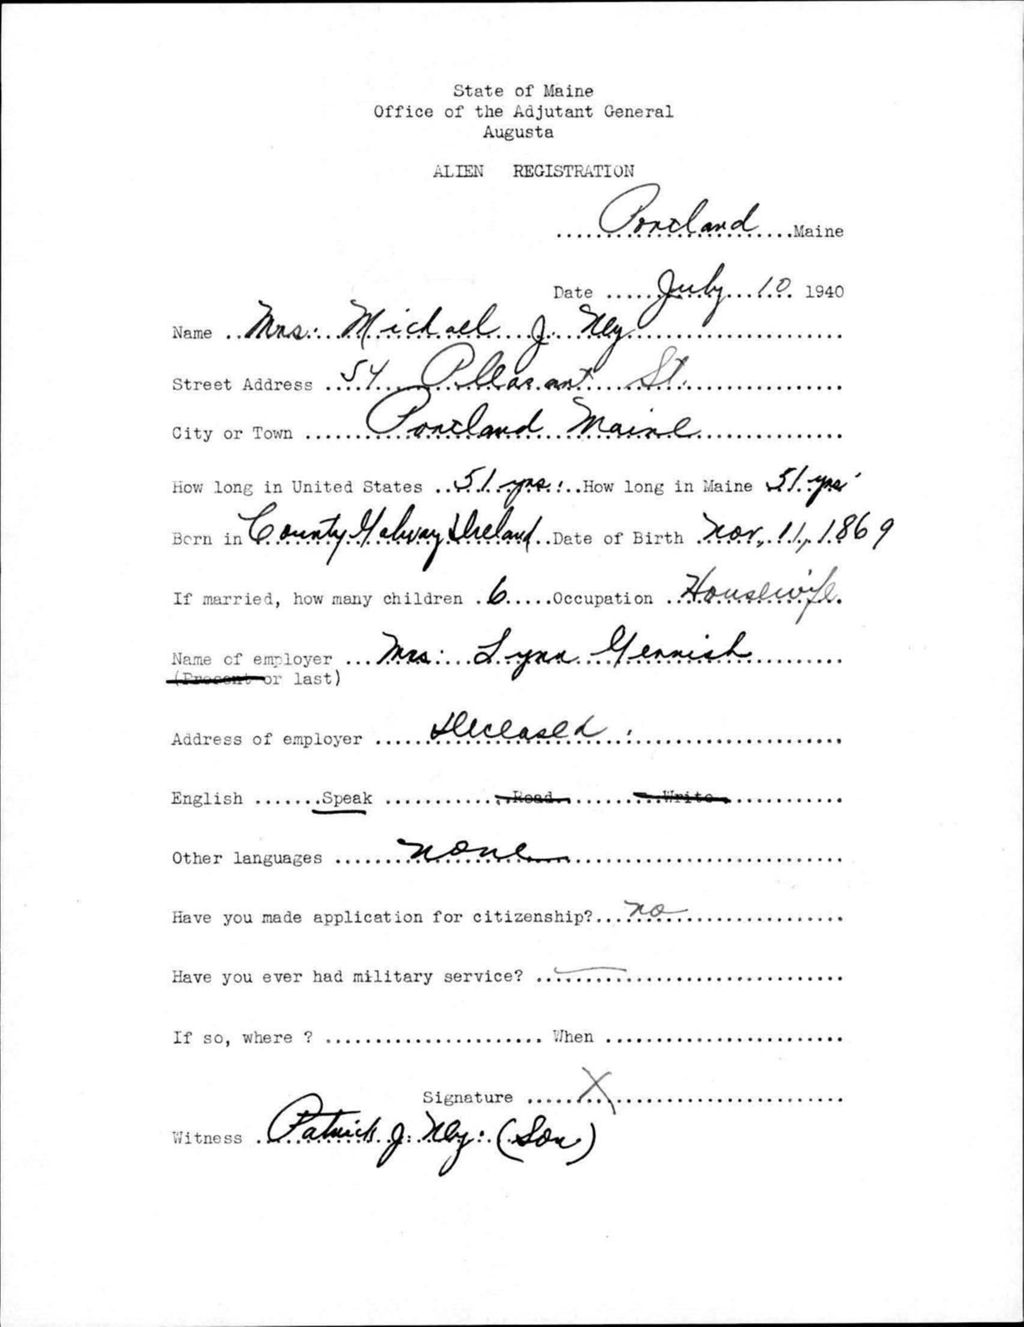 State of Maine
Office of the Adjutant General
Augusta
ALIEN REGISTRATION
.....Portland.....Maine
Date .....July...10. 1940
Name ..Mrs. Michael J. Ney
Street Address ....54 Pleasant St.
City or Town .......Portland Maine
How long in United States ..51 yrs...How long in Maine 51 yrs.
Born in County Galway Ireland..Date of Birth .Nov. 11, 1869
If married, how many children .6.....Occupation ..Housewife.
Name of employer ...Mrs. Lynn
(Present or last)
Address of employer .....deceased
English .......Speak ............Read............Write............
Other languages .......none
Have you made application for citizenship?...no
Have you ever had military service? ...
If so, where ? ...................... When ........................
Signature .....X
Witness .Patrick J. Ney. (Son)